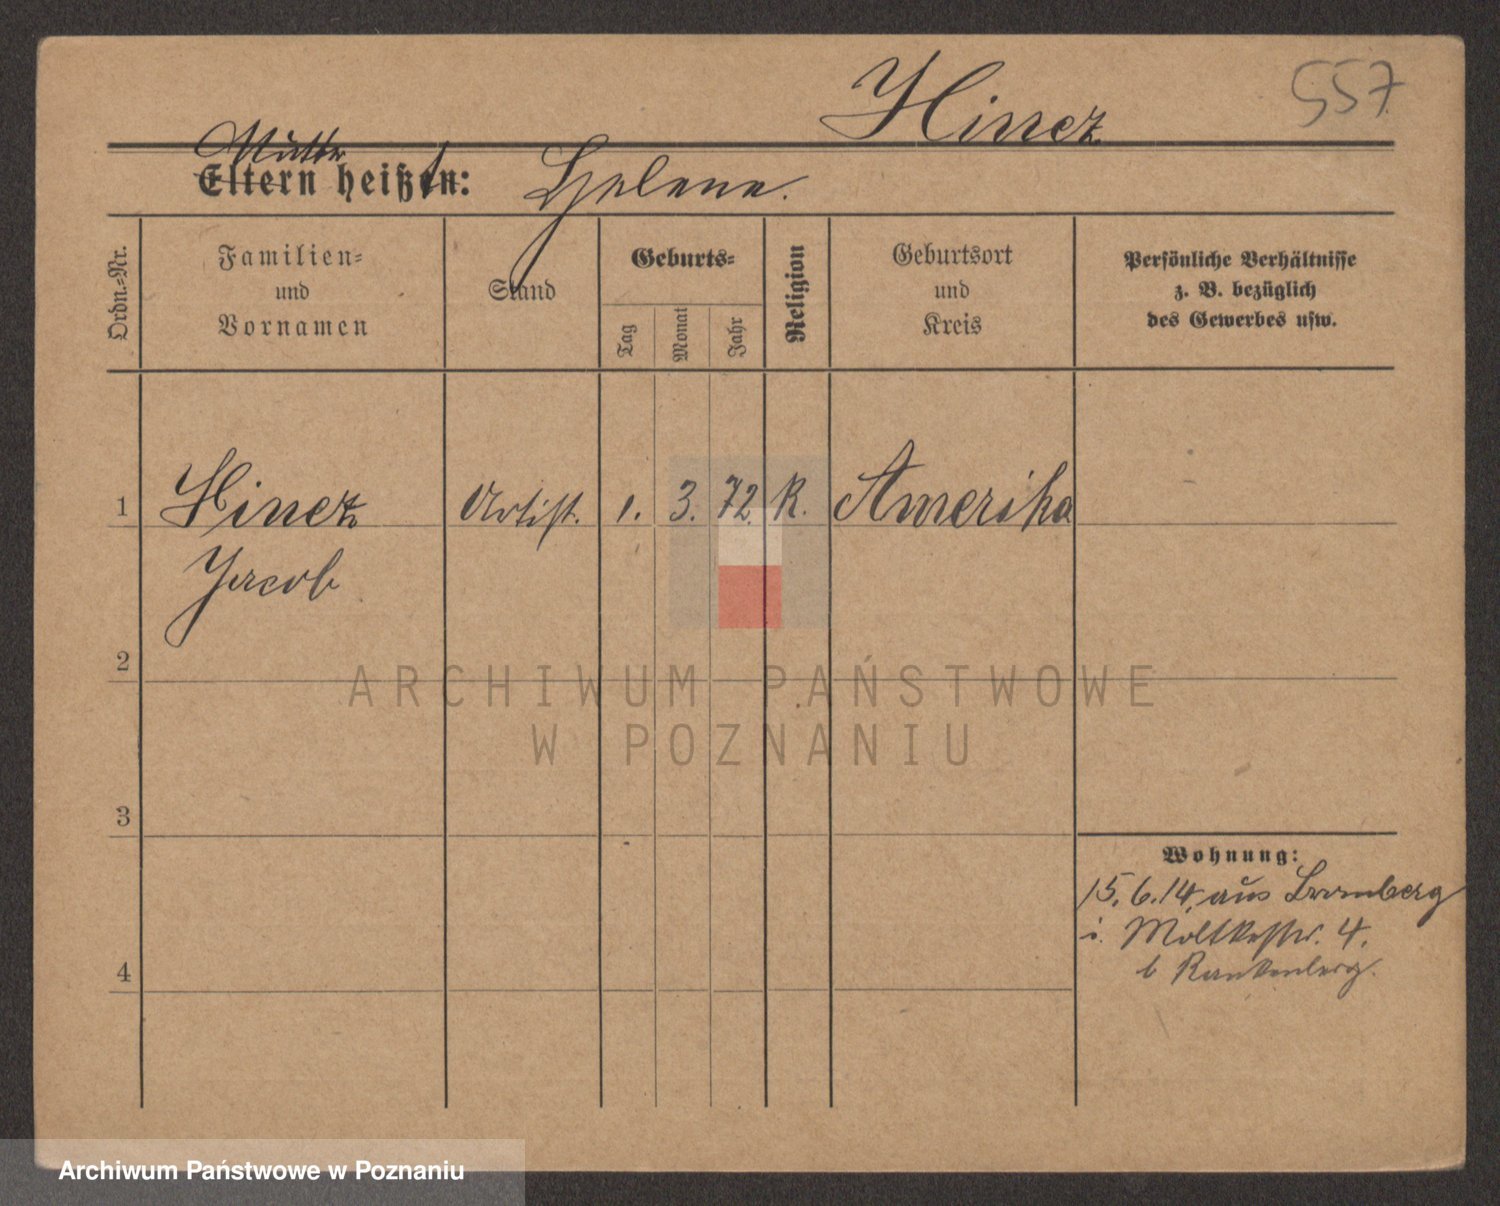 Hinez
557
Mutter
Eltern heißt en: Helene.
Ordn.-Nr.
Familien-
und
Vornamen
Stand
Geburts-
Tag
Monat
Jahr
Religion
Geburtsort
und
Kreis
Persönliche Verhältnisse
z. B. bezüglich
des Gewerbes usw.
1 Hinez Artist. 1. 3. 72. K. Amerika
Jacob
2
3
4
Wohnung:
15.6.14. aus Bromberg
i. Moltkestr. 4.
b Rankenberg.
ARCHIWUM PAŃSTWOWE
W POZNANIU
Archiwum Państwowe w Poznaniu